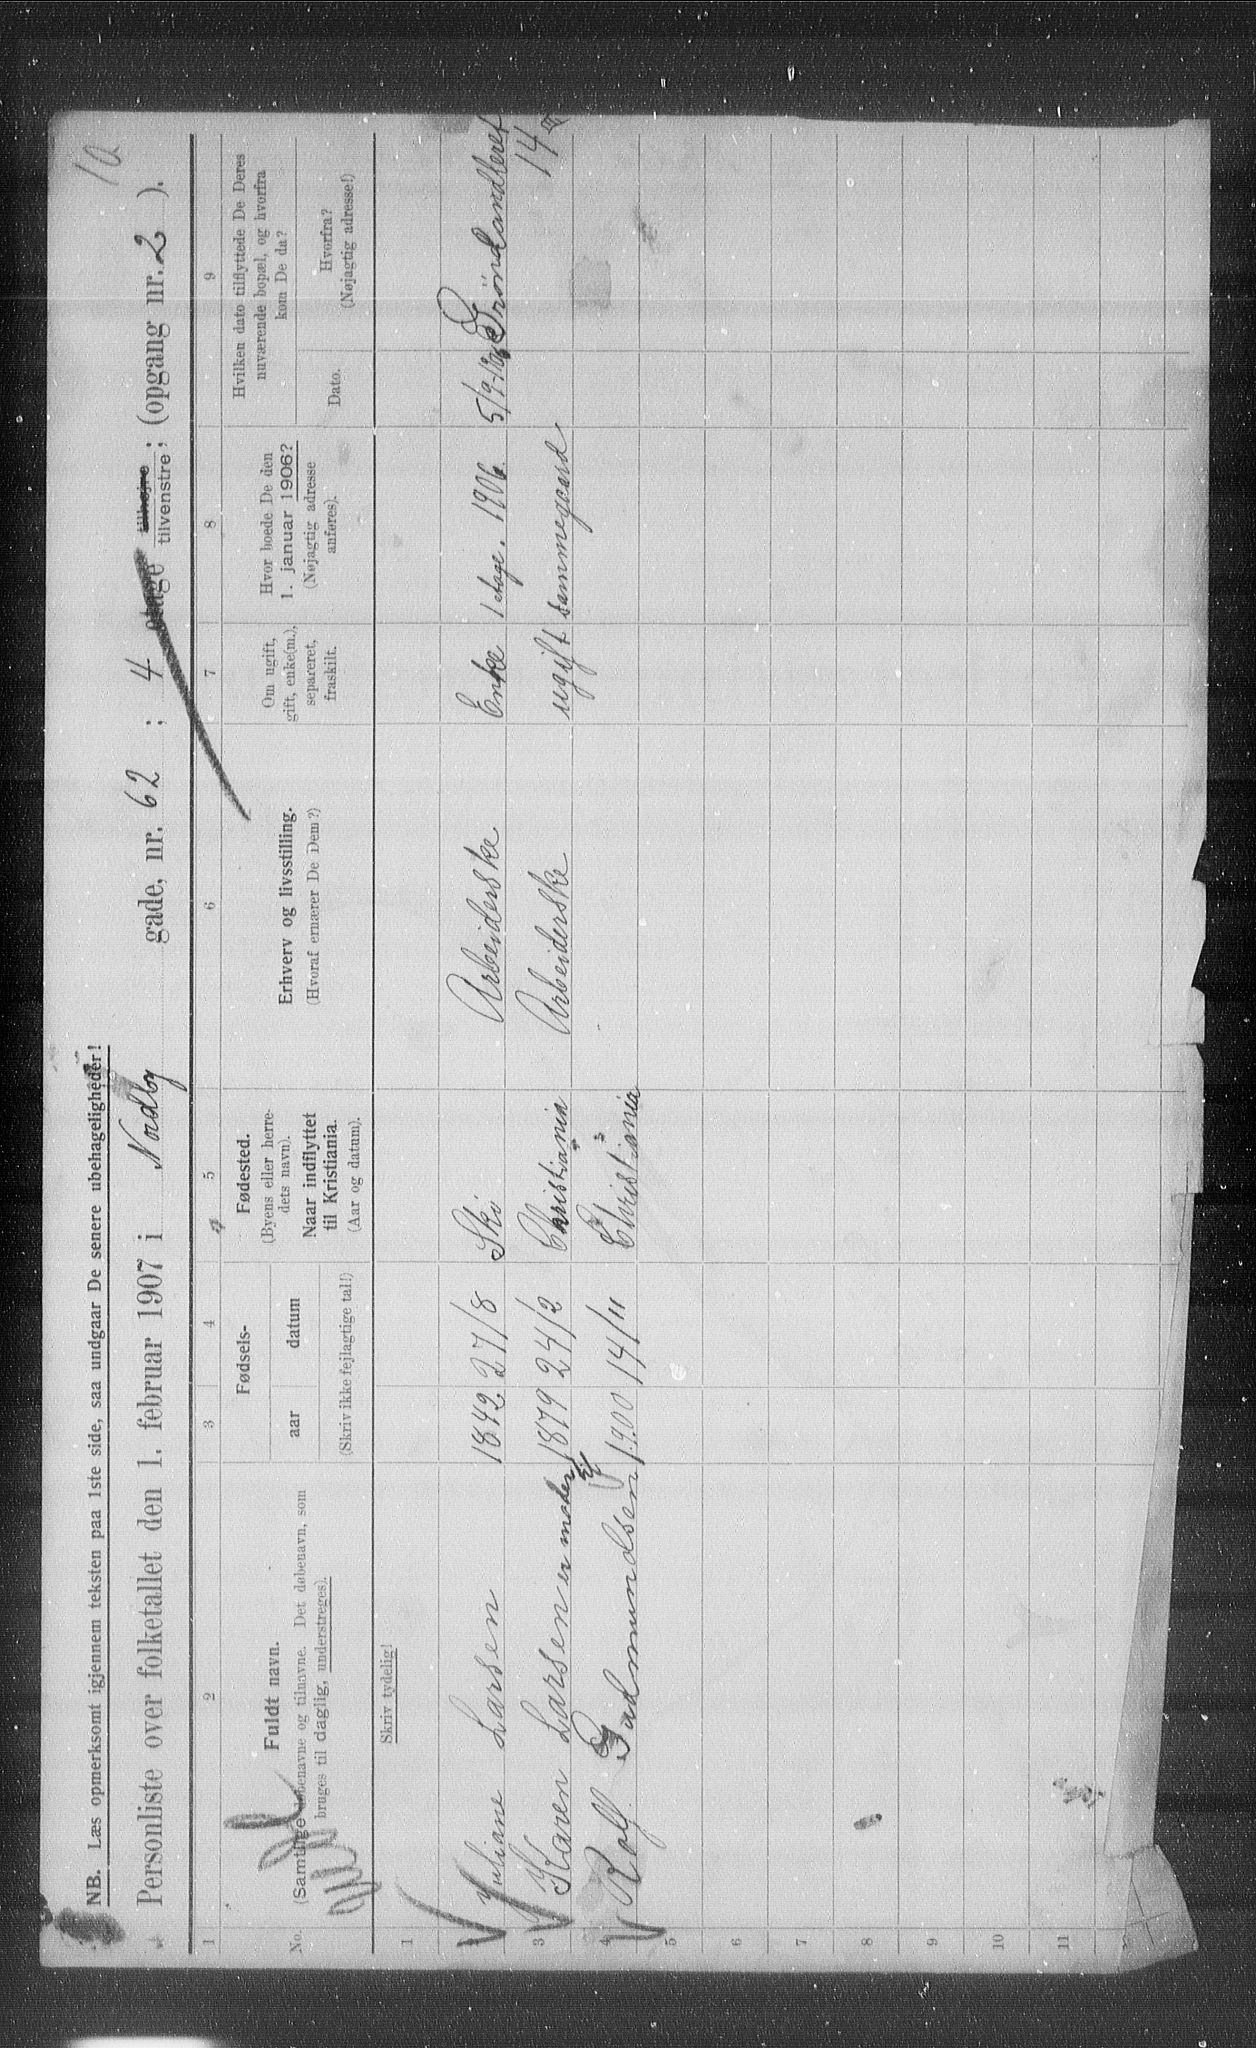 NB. Læs opmerksomt igjennem teksten paa 1ste side, saa undgaar De senere ubehageligheder!
10
Personliste over folketallet den 1. februar 1907 i Nordby gade, nr. 62 ; 4 etage tilhøjre tilvenstre ; (opgang nr. 2 ).
1 2 3 4 5 6 7 8 9
No. Fuldt navn. (Samtlige døbenavne og tilnavne. Det døbenavn, som bruges til daglig, understreges).
Fødsels- aar datum (Skriv ikke fejlagtige tal!)
Fødested. (Byens eller herredets navn). Naar indflyttet til Kristiania. (Aar og datum).
Erhverv og livsstilling. (Hvoraf ernærer De Dem?)
Om ugift, gift, enke(m.), separeret, fraskilt.
Hvor boede De den 1. januar 1906? (Nøjagtig adresse anføres).
Hvilken dato tilflyttede De Deres nuværende bopæl, og hvorfra kom De da?
Dato. Hvorfra? (Nøjagtig adresse!)
Skriv tydelig!
1
Juliane Larsen 1842 27/8 Ski Arbeiderske Enke 1 etage. 1906. 5/9-1906 Grönlandleret 14
3 Karen Larsen er moder til 1879 24/2 Christiania Arbeiderske ugift sammegaard
4 Rolf Gudmundsen 1900 14/11 Christiania
5
6
7
8
9
10
11